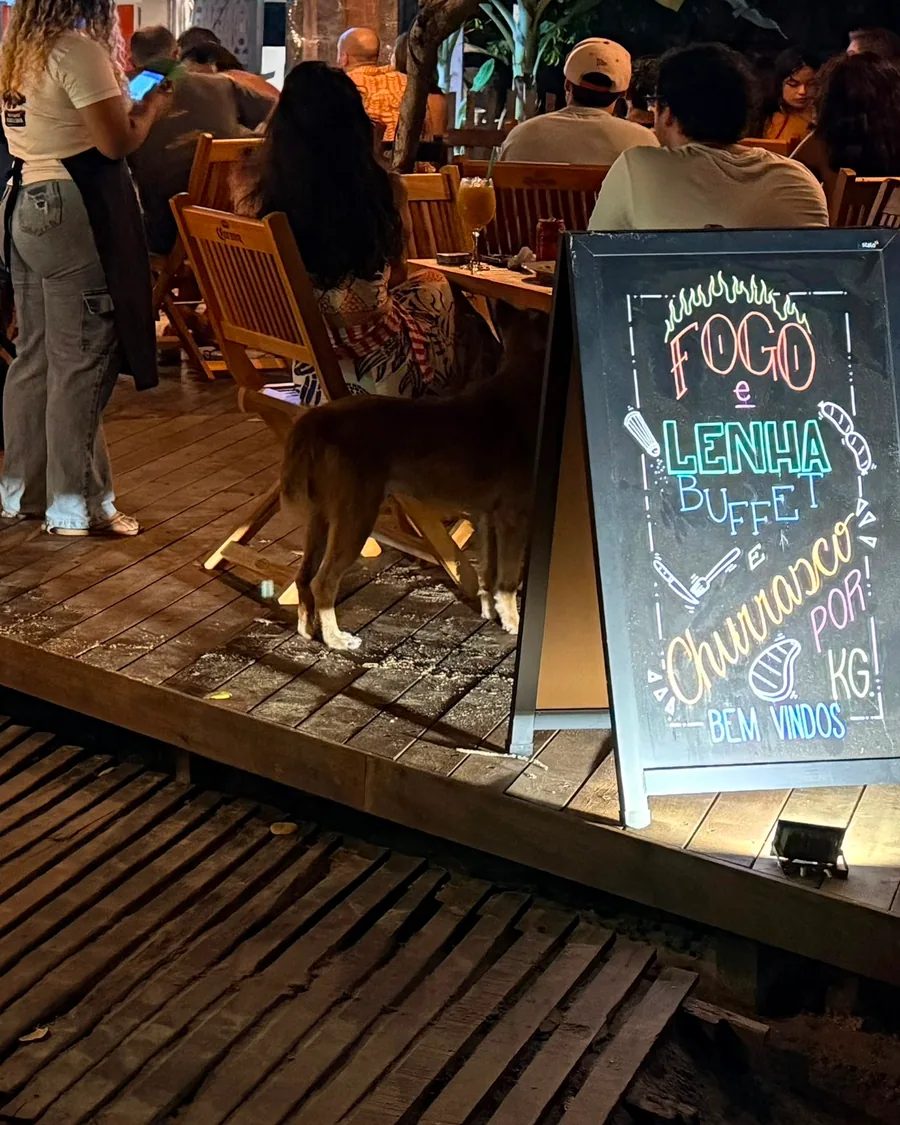 Corona
FOGO
e
LENHA
BUFFET
E
Churrasco
POR
KG
BEM VINDOS